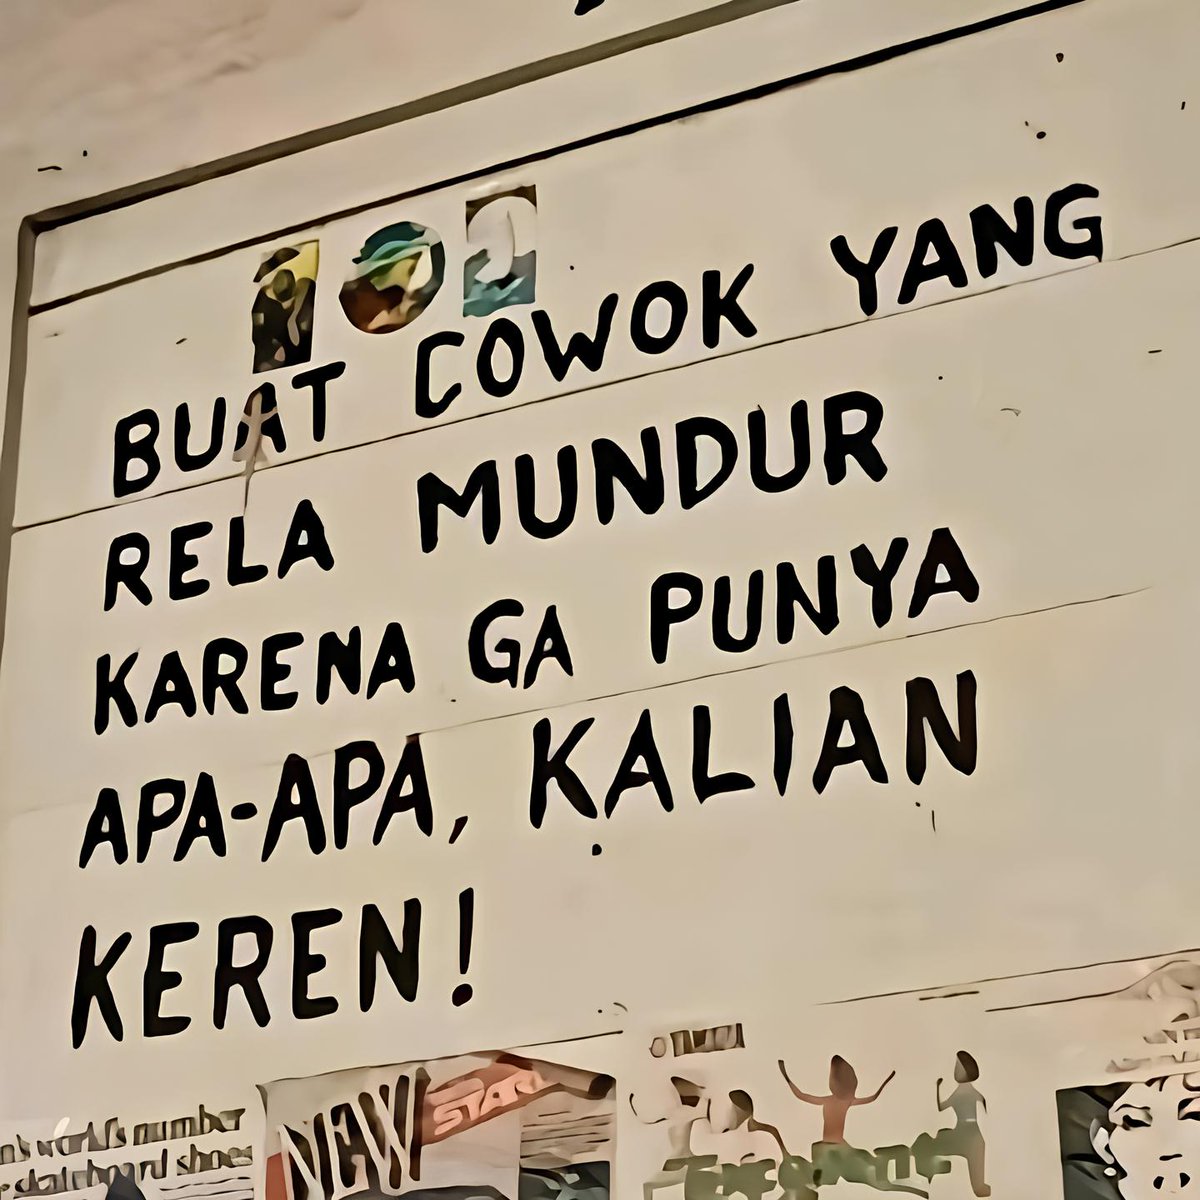 BUAT COWOK YANG
RELA MUNDUR
KARENA GA PUNYA
APA-APA, KALIAN
KEREN!
world's number
skateboard shoes
NEW
STAR